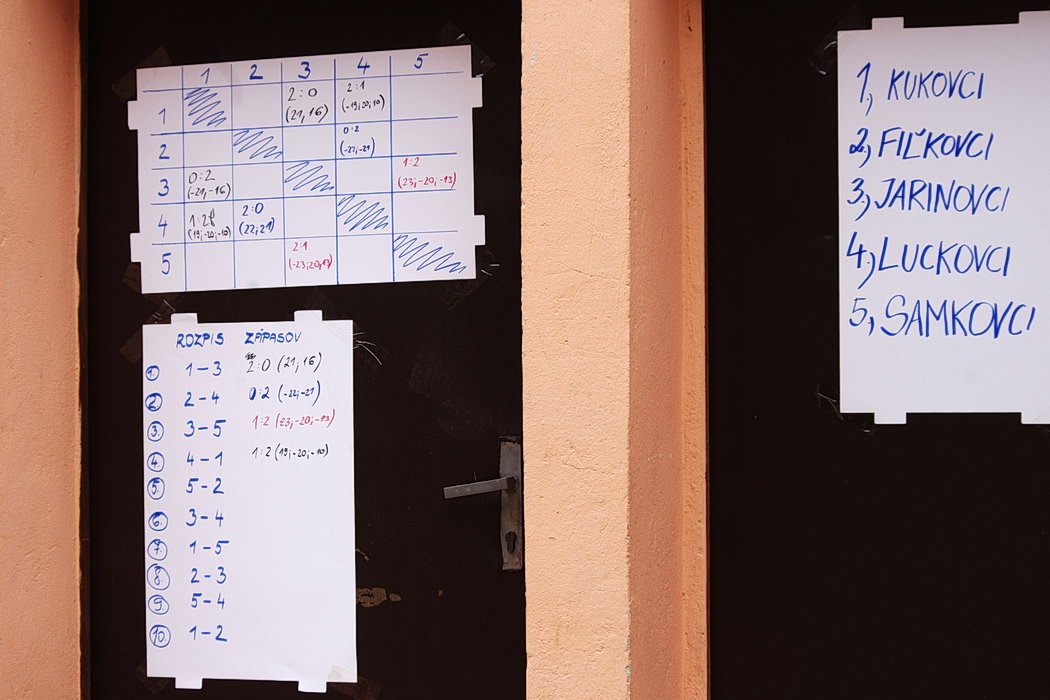 1 2 3 4 5
1 2:0 (21,16) 2:1 (-19;20;10)
2 0:2 (-22;-21)
3 0:2 (-21,-16) 1:2 (23;-20;-13)
4 1:2 (19;-20;-10) 2:0 (22;21)
5 2:1 (-23;20;13)
ROZPIS ZÁPASOV
1. 1-3 2:0 (21; 16)
2. 2-4 0:2 (-22;-21)
3. 3-5 1:2 (23;-20;-13)
4. 4-1 1:2 (19;-20;-10)
5. 5-2
6. 3-4
7. 1-5
8. 2-3
9. 5-4
10. 1-2
1, KUKOVCI
2, FIĽKOVCI
3, JARINOVCI
4, LUCKOVCI
5, SAMKOVCI